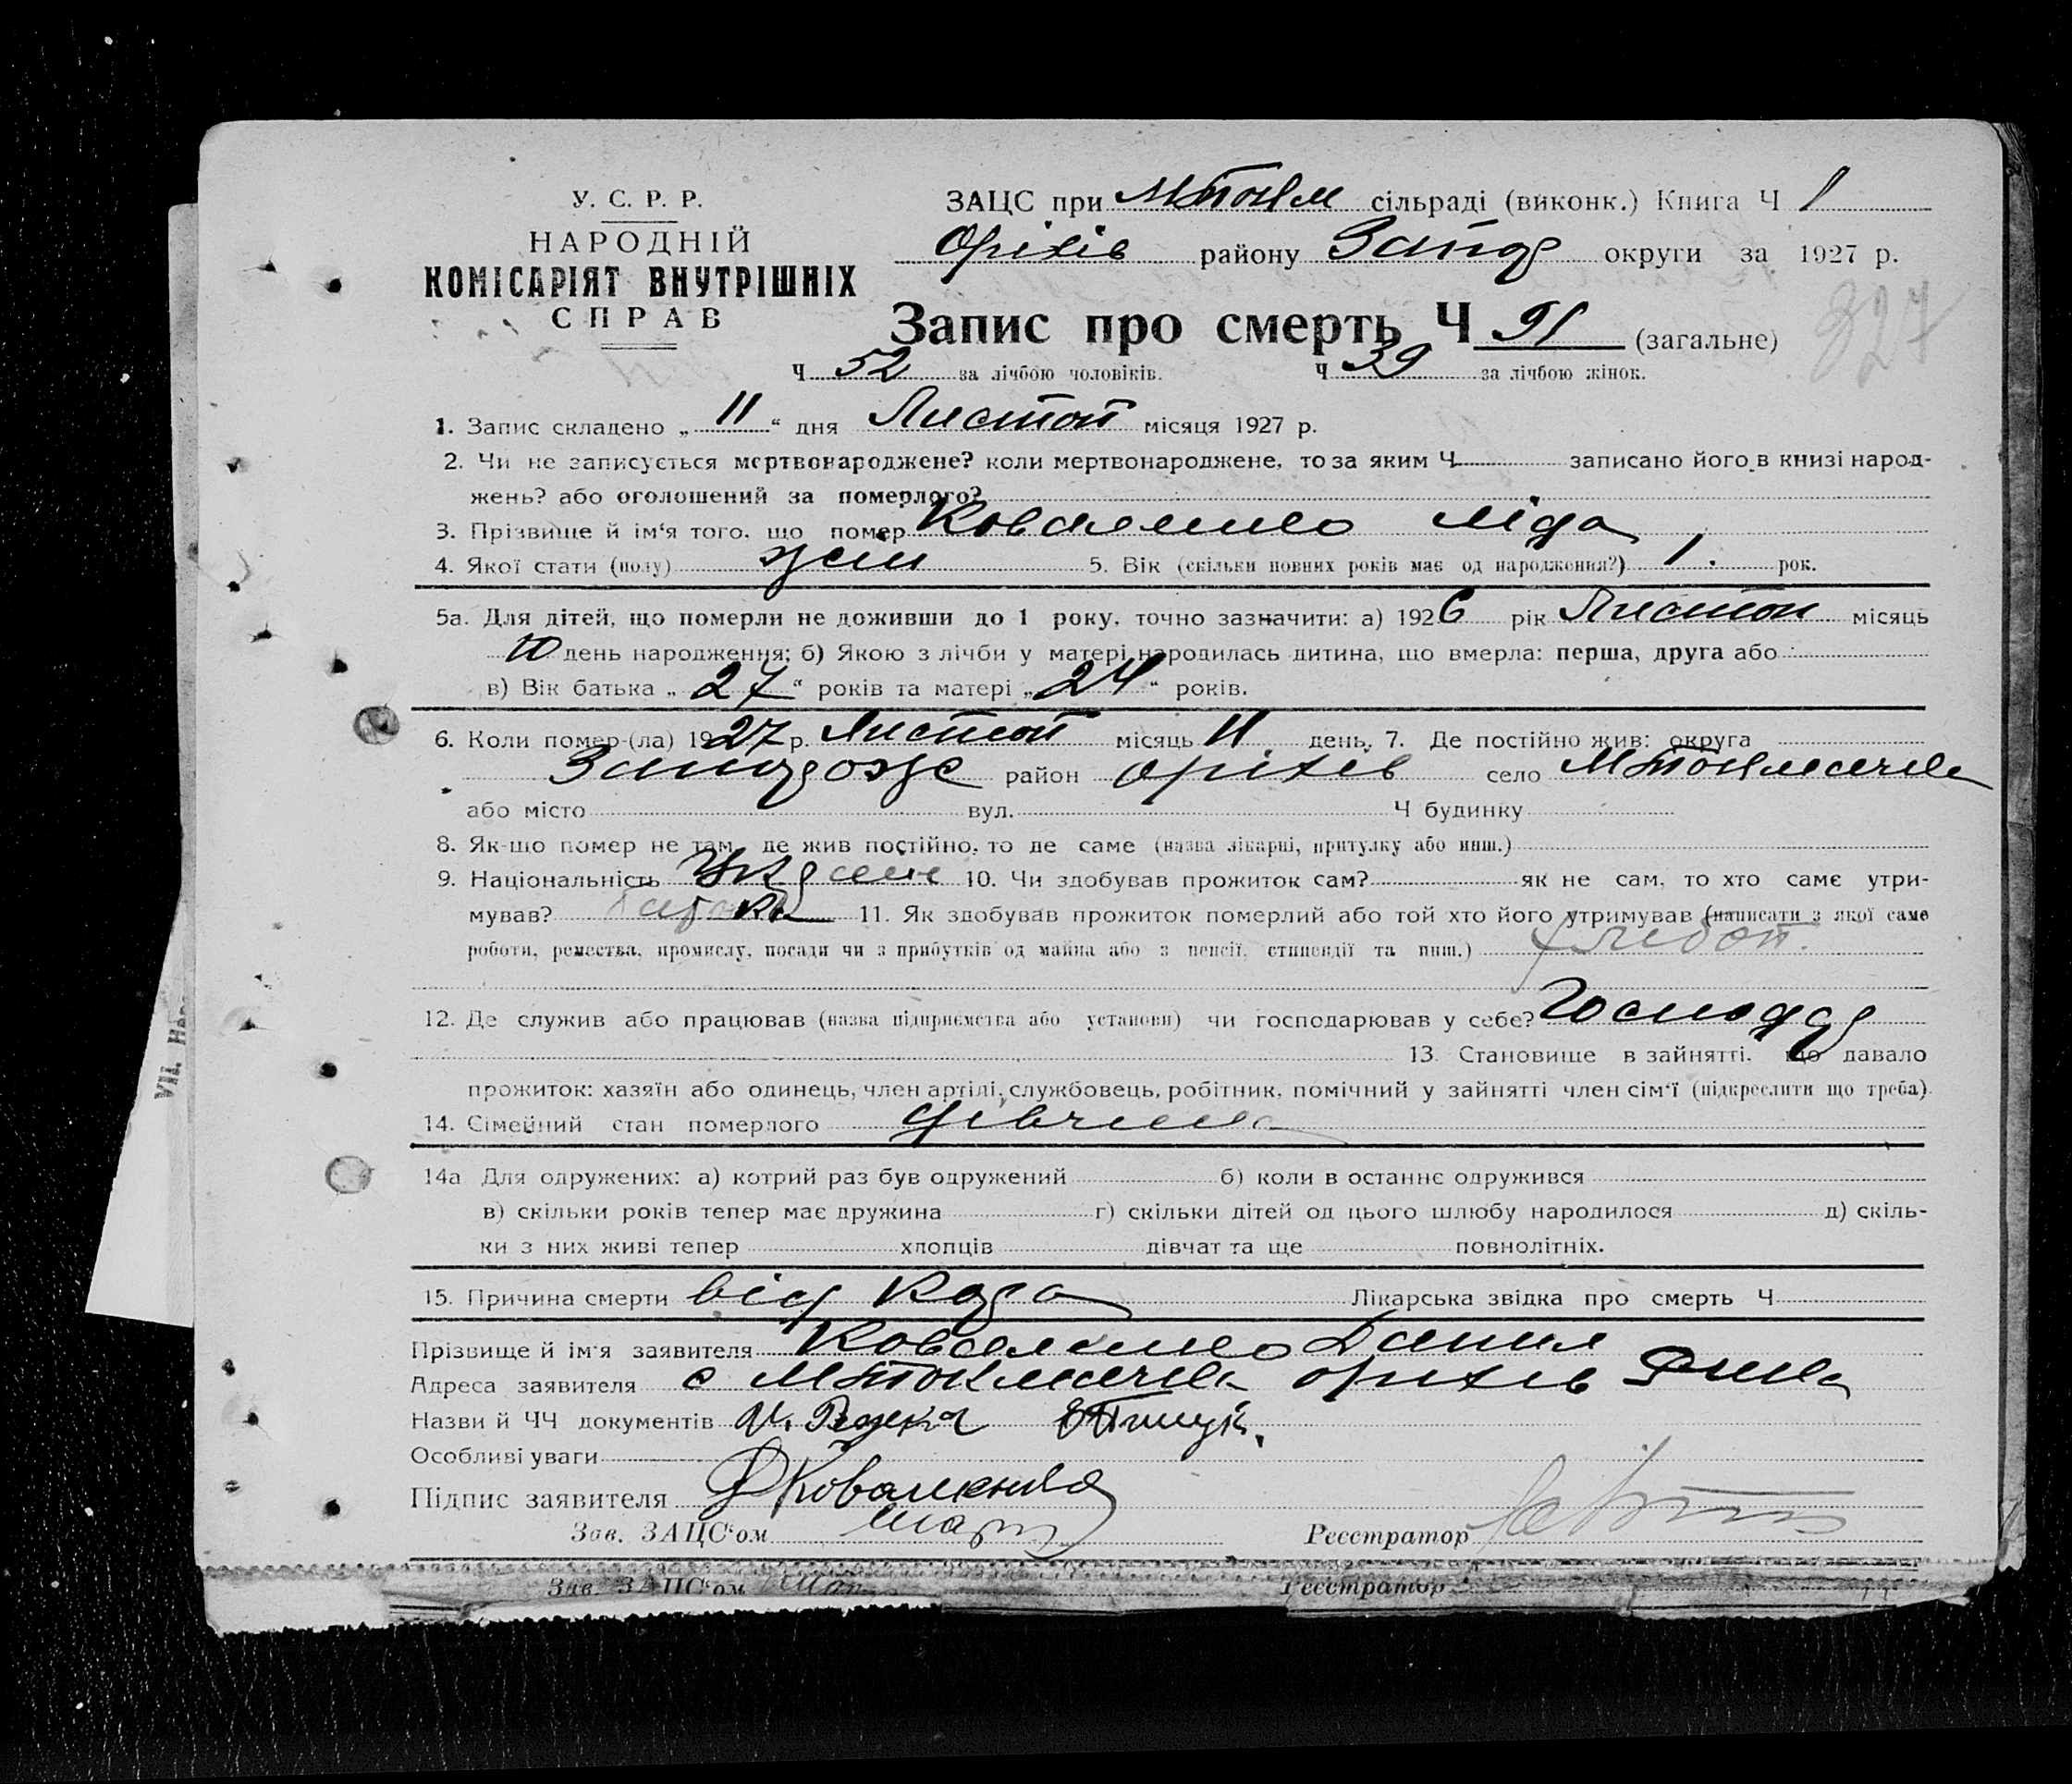 У. С. Р. Р.
НАРОДНІЙ
КОМІСАРІЯТ ВНУТРІШНІХ
СПРАВ
ЗАЦС при МТокм сільраді (виконк.) Книга Ч 1
Оріхів району Запор округи за 1927 р.
327
Запис про смерть Ч 91 (загальне)
Ч 52 за лічбою чоловіків. Ч 39 за лічбою жінок.
1. Запис складено „ 11 “ дня Листоп місяця 1927 р.
2. Чи не записується мертвонароджене? коли мертвонароджене, то за яким Ч записано його в книзі народ-
жень? або оголошений за померлого?
3. Прізвище й ім'я того, що помер Коваленко Ліда
4. Якої стати (полу) жен 5. Вік (скільки повних років має од народження?) 1. рок.
5а. Для дітей, що померли не доживши до 1 року, точно зазначити: а) 1926 рік Листоп місяць
10 день народження; б) Якою з лічби у матері народилась дитина, що вмерла: перша, друга або
в) Вік батька „ 27 “ років та матері „ 24 “ років.
6. Коли помер-(ла) 1927 р. Листоп місяць 11 день. 7. Де постійно жив: округа
Запорожс район Оріхів село МТокмачка
або місто вул. Ч будинку
8. Як-що помер не там, де жив постійно, то де саме (назва лікарні, притулку або инш.)
9. Національність 10. Чи здобував прожиток сам? як не сам, то хто саме утри-
мував? батько 11. Як здобував прожиток померлий або той хто його утримував (написати з якої саме
роботи, ремества, промислу, посади чи з прибутків од майна або з пенсії, стипендії та инш.) хлібоп.
12. Де служив або працював (назва підприємства або установи) чи господарював у себе? Господар
13. Становище в зайнятті, що давало
прожиток: хазяїн або одинець, член артілі, службовець, робітник, помічний у зайнятті член сім'ї (підкреслити що треба)
14. Сімейний стан померлого дівчина
14а Для одружених: а) котрий раз був одружений б) коли в останнє одружився
в) скільки років тепер має дружина г) скільки дітей од цього шлюбу народилося д) скіль-
ки з них живі тепер хлопців дівчат та ще повнолітніх.
15. Причина смерти від Кора Лікарська звідка про смерть Ч
Прізвище й ім'я заявителя Коваленко Данил
Адреса заявителя с МТокмачка Оріхів
Назви й ЧЧ документів
Особливі уваги
Підпис заявителя ДКоваленко
Зав. ЗАЦС'ом Реєстратор
Зав. ЗАЦС'ом Реєстратор